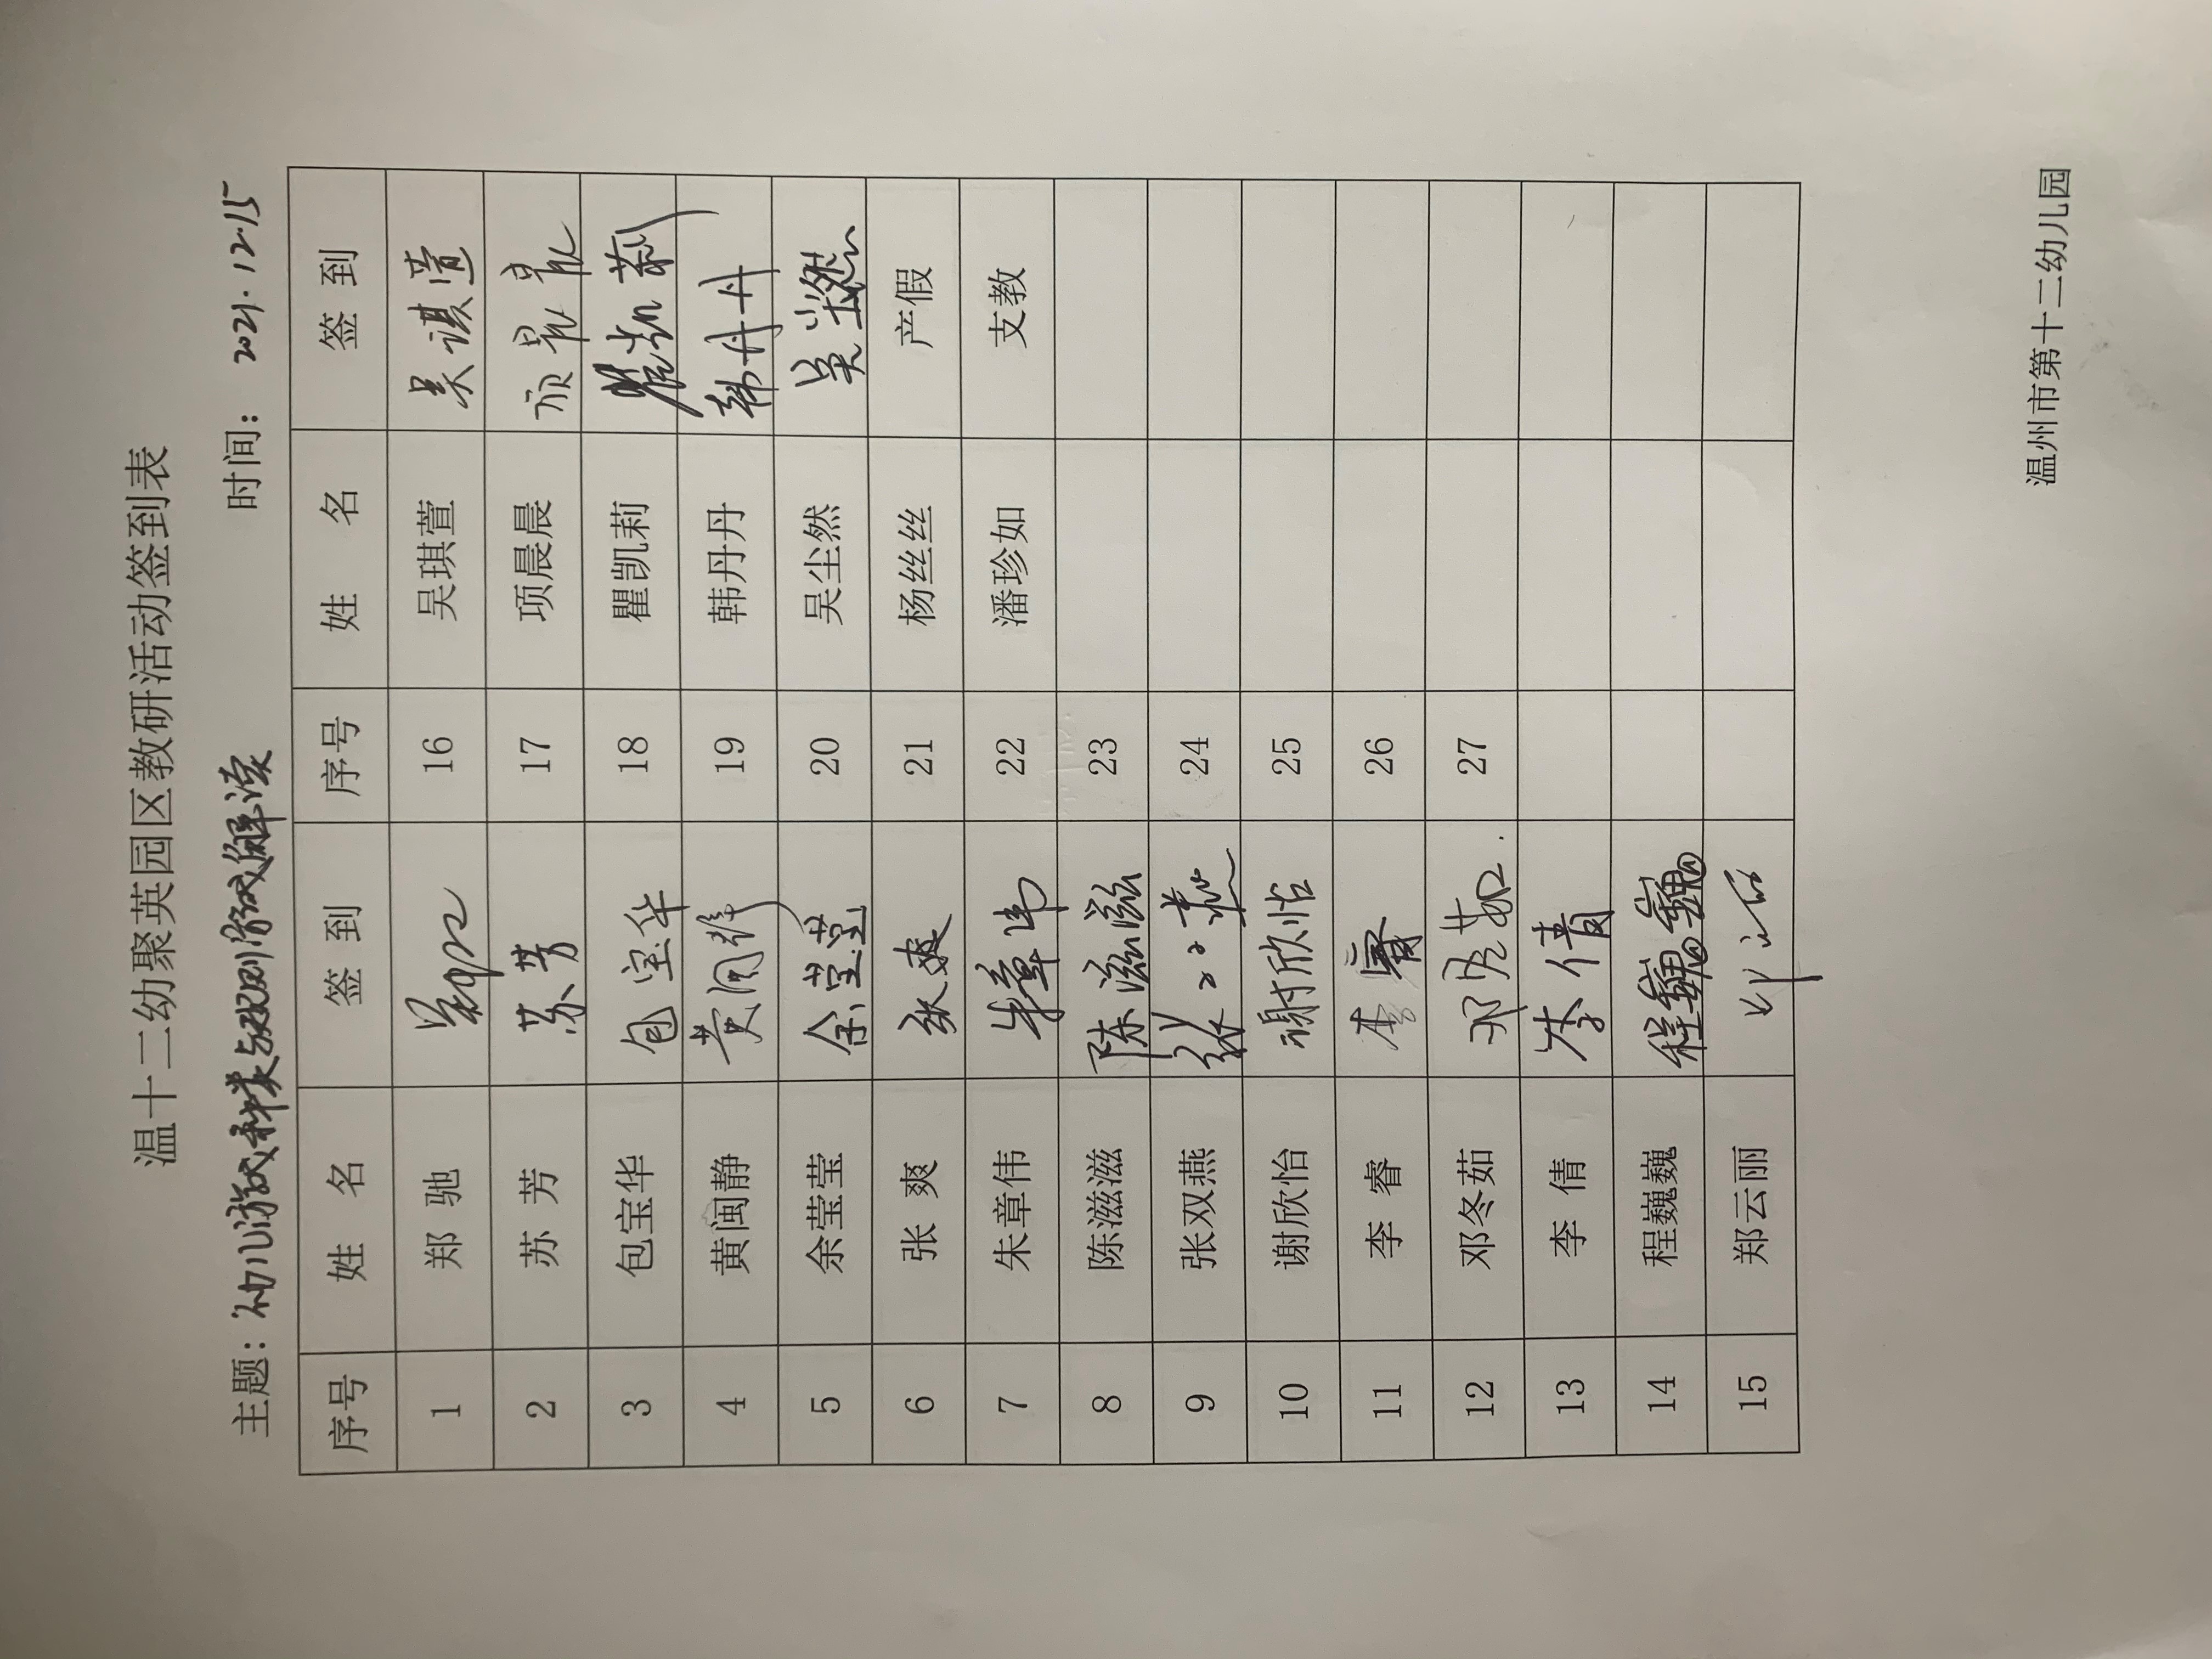 温十二幼聚英园区教研活动签到表
主题：幼儿游戏种类与规则游戏解读 时间： 2021.12.15
序号 姓 名 签 到 序号 姓 名 签 到
1 郑 驰 郑 16 吴琪萱 吴琪萱
2 苏 芳 苏芳 17 项晨晨 项晨晨
3 包宝华 包宝华 18 瞿凯莉 瞿凯莉
4 黄闽静 黄闽静 19 韩丹丹 韩丹丹
5 余莹莹 余莹莹 20 吴尘然 吴尘然
6 张 爽 张爽 21 杨丝丝 产假
7 朱章伟 朱章伟 22 潘珍如 支教
8 陈滋滋 陈滋滋 23
9 张双燕 张双燕 24
10 谢欣怡 谢欣怡 25
11 李 睿 李睿 26
12 邓冬茹 邓冬茹 27
13 李 倩 李倩
14 程巍巍 程巍巍
15 郑云丽
温州市第十二幼儿园